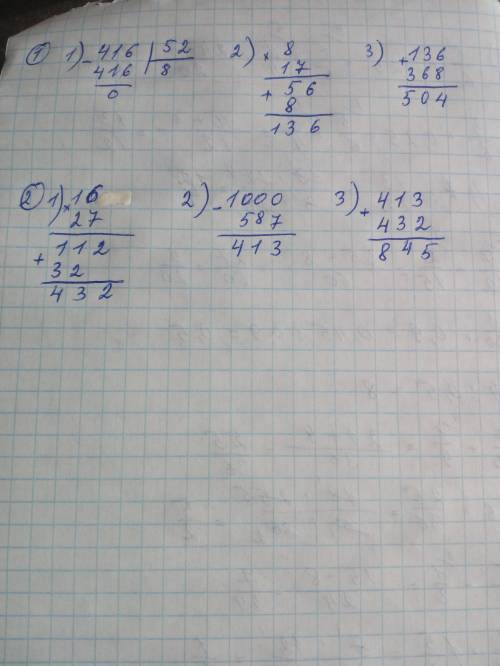 ① 1) - 416 | 52 2) × 8 3) + 136
416 8 17 368
0 + 56 504
8
136
② 1) × 16 2) - 1000 3) + 413
27 587 432
112 413 845
+ 32
432